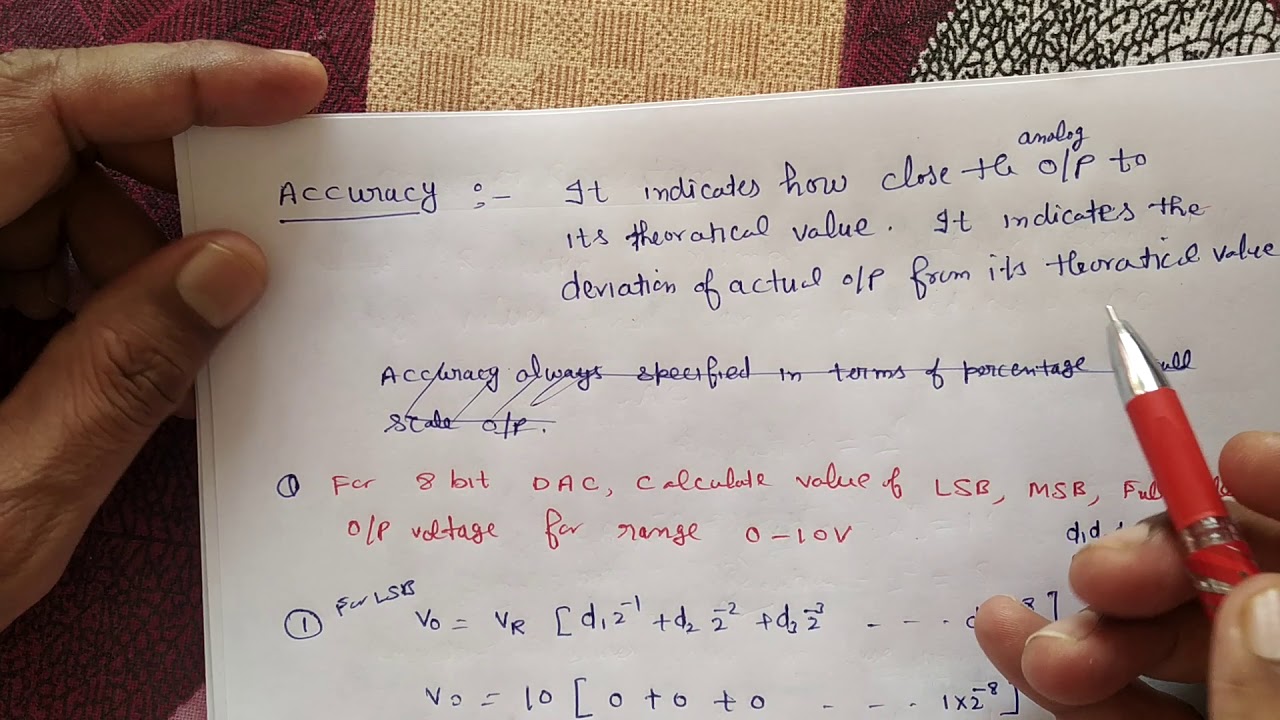 analog
Accuracy :- It indicates how close the o/p to
its theoratical value. It indicates the
deviation of actual o/p from its theoratical value
Accuracy always specified in terms of percentage
scale o/p.
① For 8 bit DAC, Calculate value of LSB, MSB,
O/P voltage for range 0-10V
d₁d
① For LSB
V₀ = VR [d₁2⁻¹ + d₂ 2⁻² + d₃ 2⁻³ - - - d 8]
V₀ = 10 [0 + 0 + 0 - - - 1×2⁻⁸]